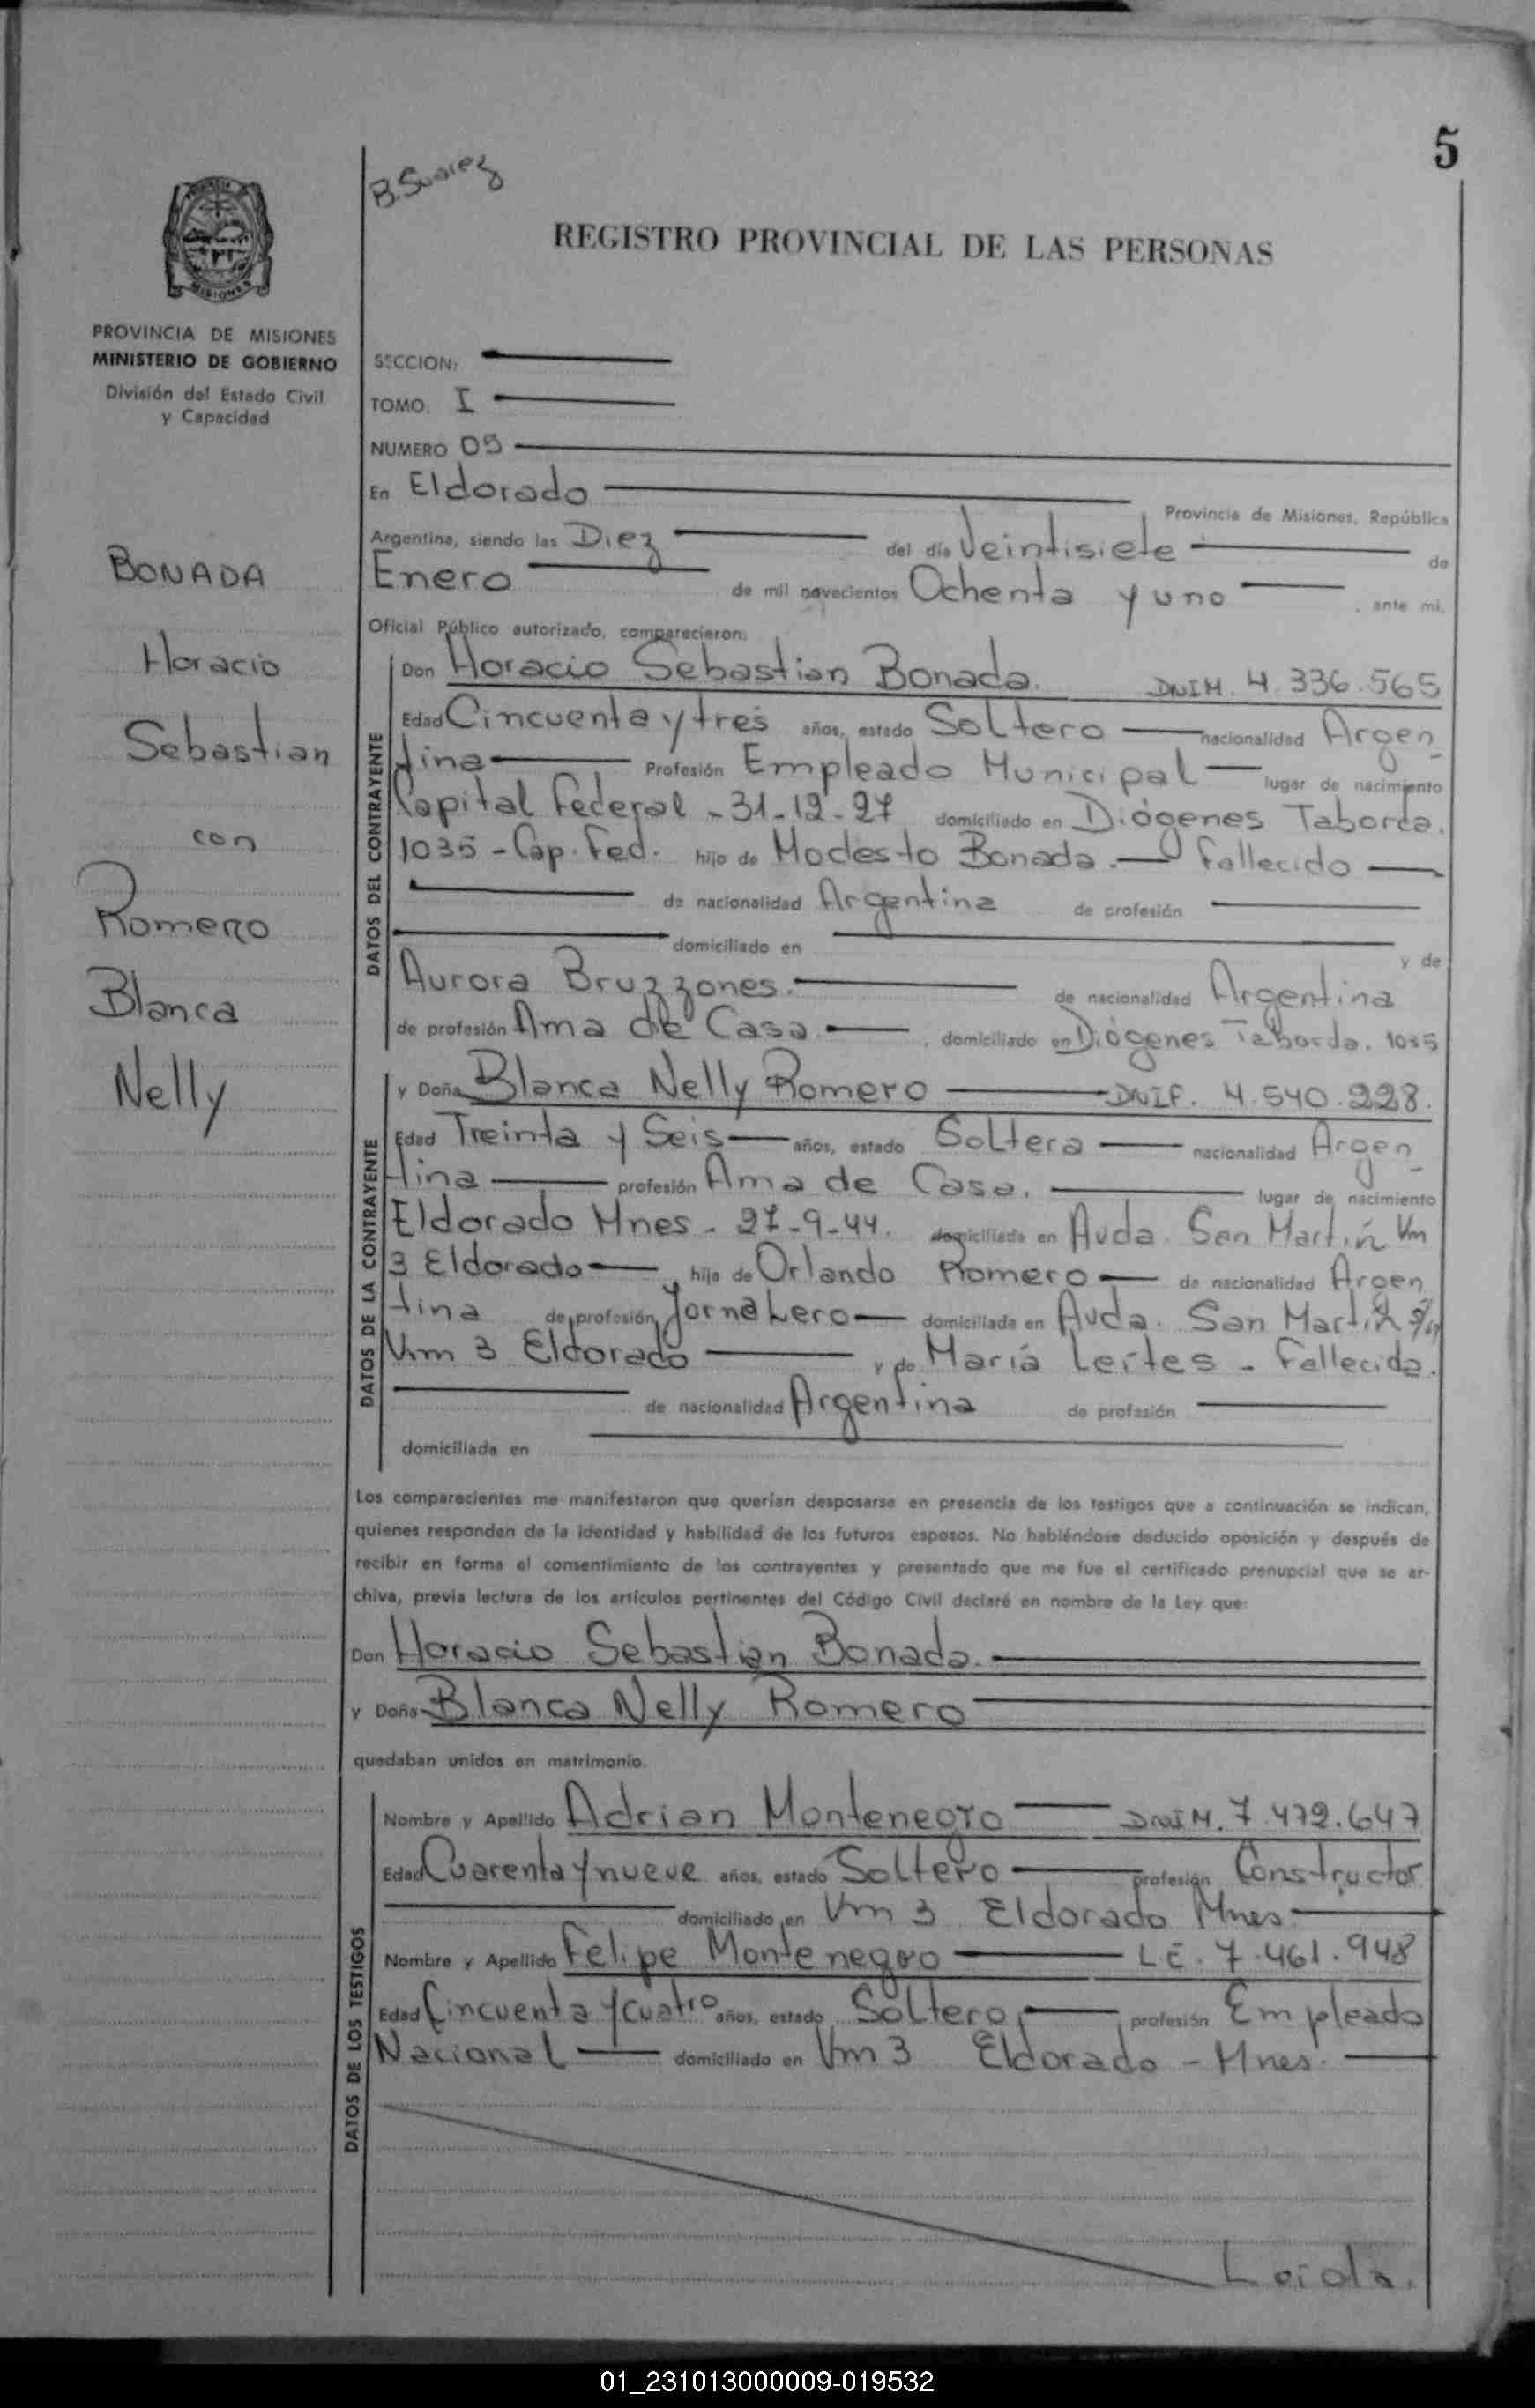 5
B. Suarez
REGISTRO PROVINCIAL DE LAS PERSONAS
MISIONES
PROVINCIA DE MISIONES
MINISTERIO DE GOBIERNO
División del Estado Civil
y Capacidad
BONADA
Horacio
Sebastian
con
Romero
Blanca
Nelly
SECCION:
TOMO: I
NUMERO 05
En Eldorado Provincia de Misiones, República
Argentina, siendo las Diez del día Veintisiete de
Enero de mil novecientos Ochenta y uno, ante mi,
Oficial Público autorizado, comparecieron:
DATOS DEL CONTRAYENTE
Don Horacio Sebastian Bonada. DNIM. 4.336.565
Edad Cincuenta y tres años, estado Soltero nacionalidad Argen
tina Profesión Empleado Municipal lugar de nacimiento
Capital Federal - 31-12-27 domiciliado en Diógenes Taborda.
1035 - Cap. Fed. hijo de Modesto Bonada. - Fallecido
de nacionalidad Argentina de profesión
domiciliado en y de
Aurora Bruzzones. de nacionalidad Argentina
de profesión Ama de Casa. domiciliado en Diógenes Taborda. 1035
DATOS DE LA CONTRAYENTE
y Doña Blanca Nelly Romero DNIF. 4.540.228.
Edad Treinta y Seis años, estado Soltera nacionalidad Argen
tina profesión Ama de Casa. lugar de nacimiento
Eldorado Mnes. 27-9-44. domiciliada en Avda. San Martín Km
3 Eldorado, hija de Orlando Romero de nacionalidad Argen
tina de profesión Jornalero domiciliada en Avda. San Martín s/n
Km 3 Eldorado y de María Leites - Fallecida.
de nacionalidad Argentina de profesión
domiciliada en
Los comparecientes me manifestaron que querían desposarse en presencia de los testigos que a continuación se indican,
quienes responden de la identidad y habilidad de los futuros esposos. No habiéndose deducido oposición y después de
recibir en forma el consentimiento de los contrayentes y presentado que me fue el certificado prenupcial que se ar-
chiva, previa lectura de los artículos pertinentes del Código Civil declaré en nombre de la Ley que:
Don Horacio Sebastian Bonada.
y Doña Blanca Nelly Romero
quedaban unidos en matrimonio.
DATOS DE LOS TESTIGOS
Nombre y Apellido Adrian Montenegro DNIM. 7.472.647
Edad Cuarenta y nueve años, estado Soltero profesión Constructor
domiciliado en Km 3 Eldorado Mnes.
Nombre y Apellido Felipe Montenegro LE. 7.461.948
Edad Cincuenta y cuatro años, estado Soltero, profesión Empleado
Nacional domiciliado en Km 3 Eldorado - Mnes.
Leida.
01_231013000009-019532